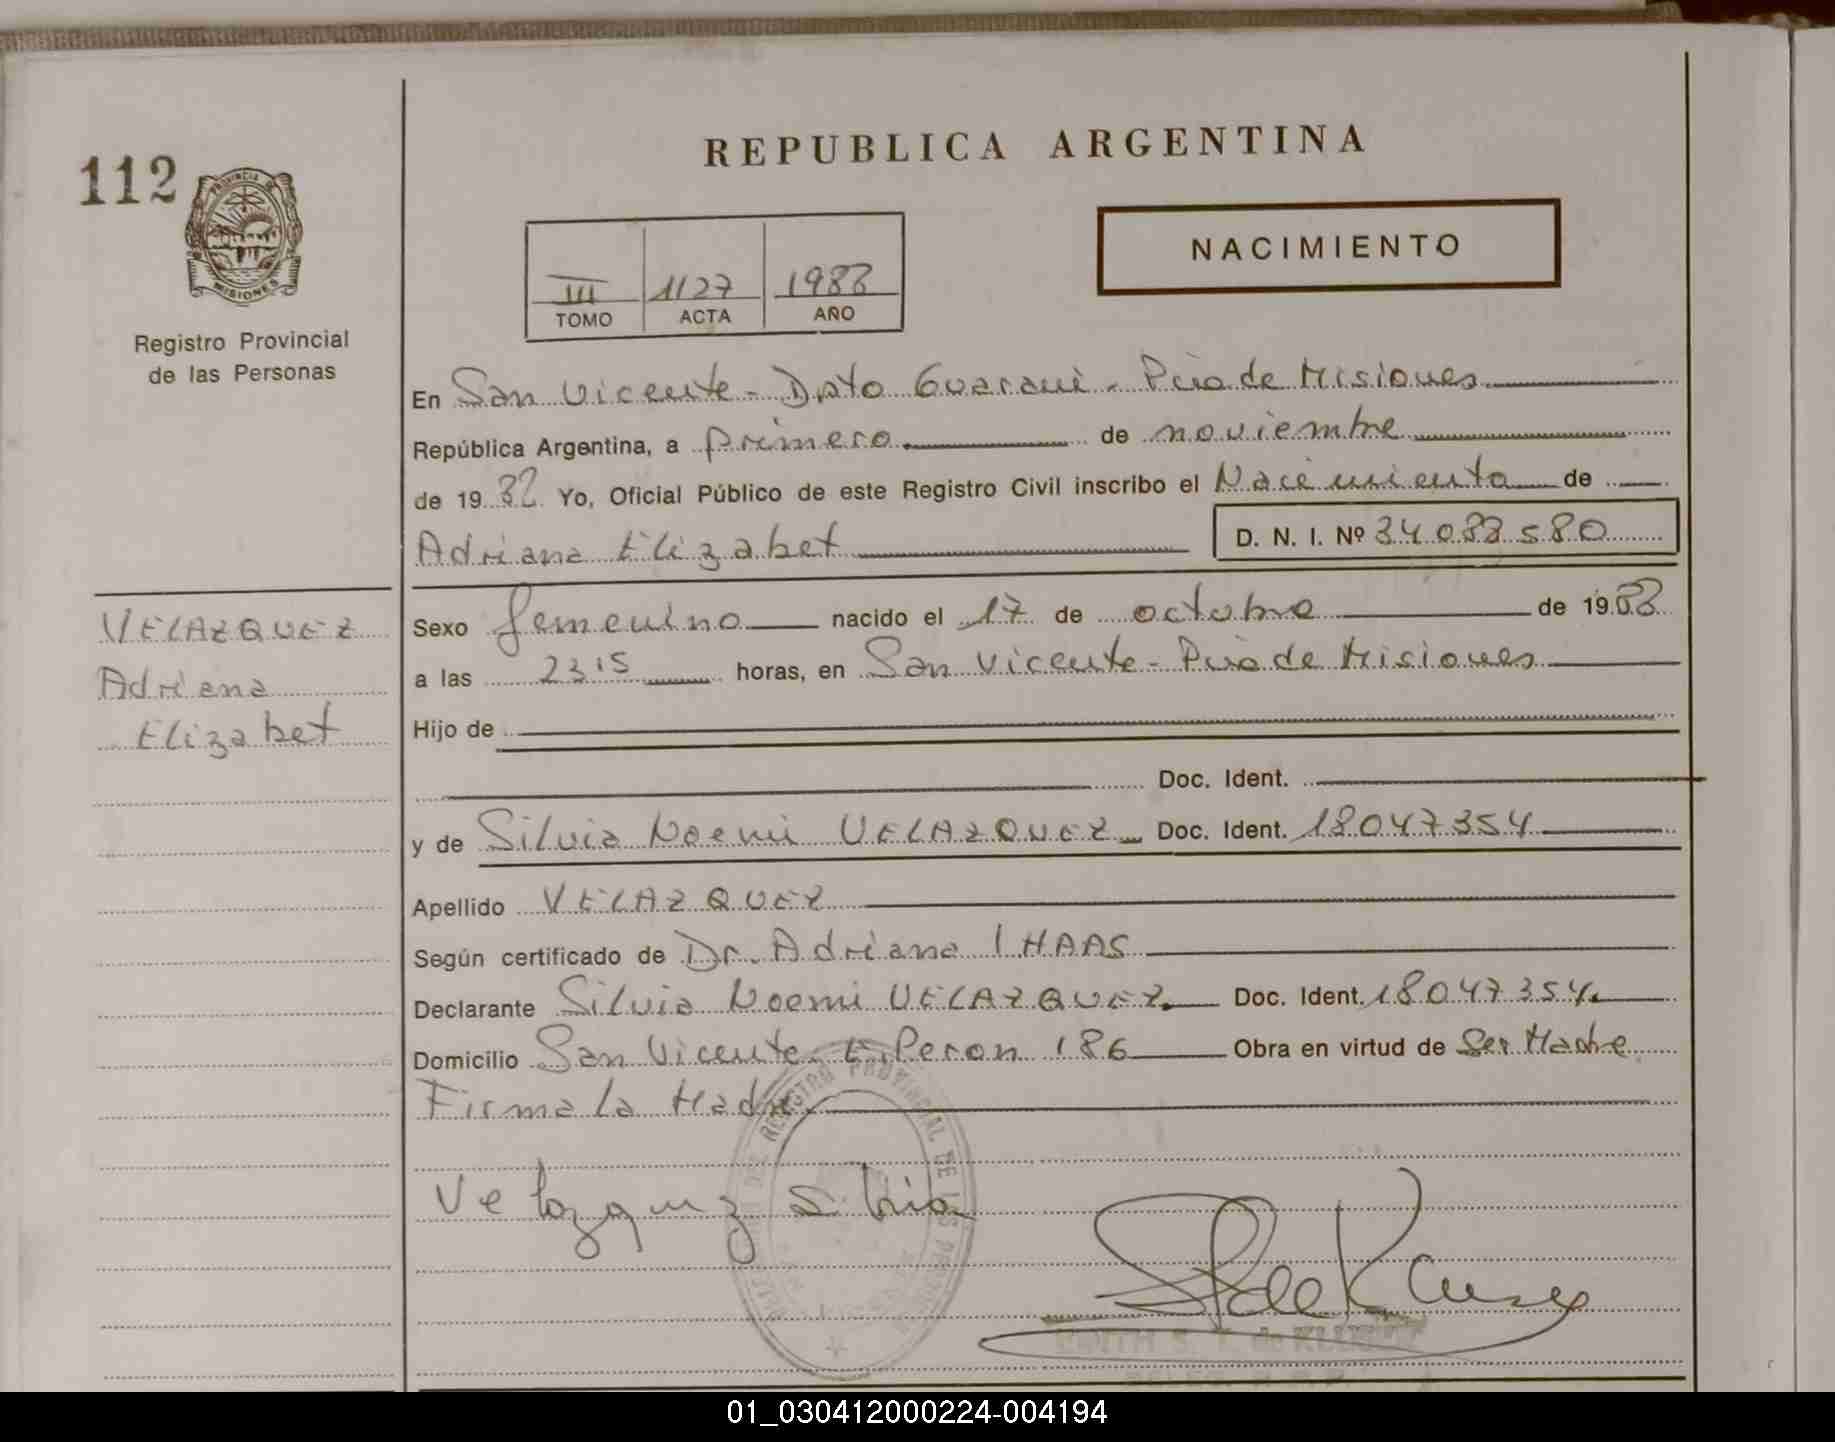 REPUBLICA ARGENTINA
112
PROVINCIA DE
MISIONES
Registro Provincial
de las Personas
NACIMIENTO
III 1127 1988
TOMO ACTA AÑO
En San Vicente - Dpto Guarani - Pcia de Misiones
República Argentina, a primero de noviembre
de 1988 Yo, Oficial Público de este Registro Civil inscribo el Nacimiento de
Adriana Elizabet D. N. I. Nº 34.088.580
VELAZQUEZ
Adriana
Elizabet
Sexo femenino nacido el 17 de octubre de 1988
a las 23 15 horas, en San Vicente - Pcia de Misiones
Hijo de
Doc. Ident.
y de Silvia Noemi VELAZQUEZ Doc. Ident. 18047354
Apellido VELAZQUEZ
Según certificado de Dr. Adriana I HAAS
Declarante Silvia Noemi VELAZQUEZ Doc. Ident. 18047354
Domicilio San Vicente - E. Peron 186 Obra en virtud de Ser Madre
Firma la Madre.
REGISTRO PROVINCIAL DE LAS
Velazquez Silvia
01_030412000224-004194